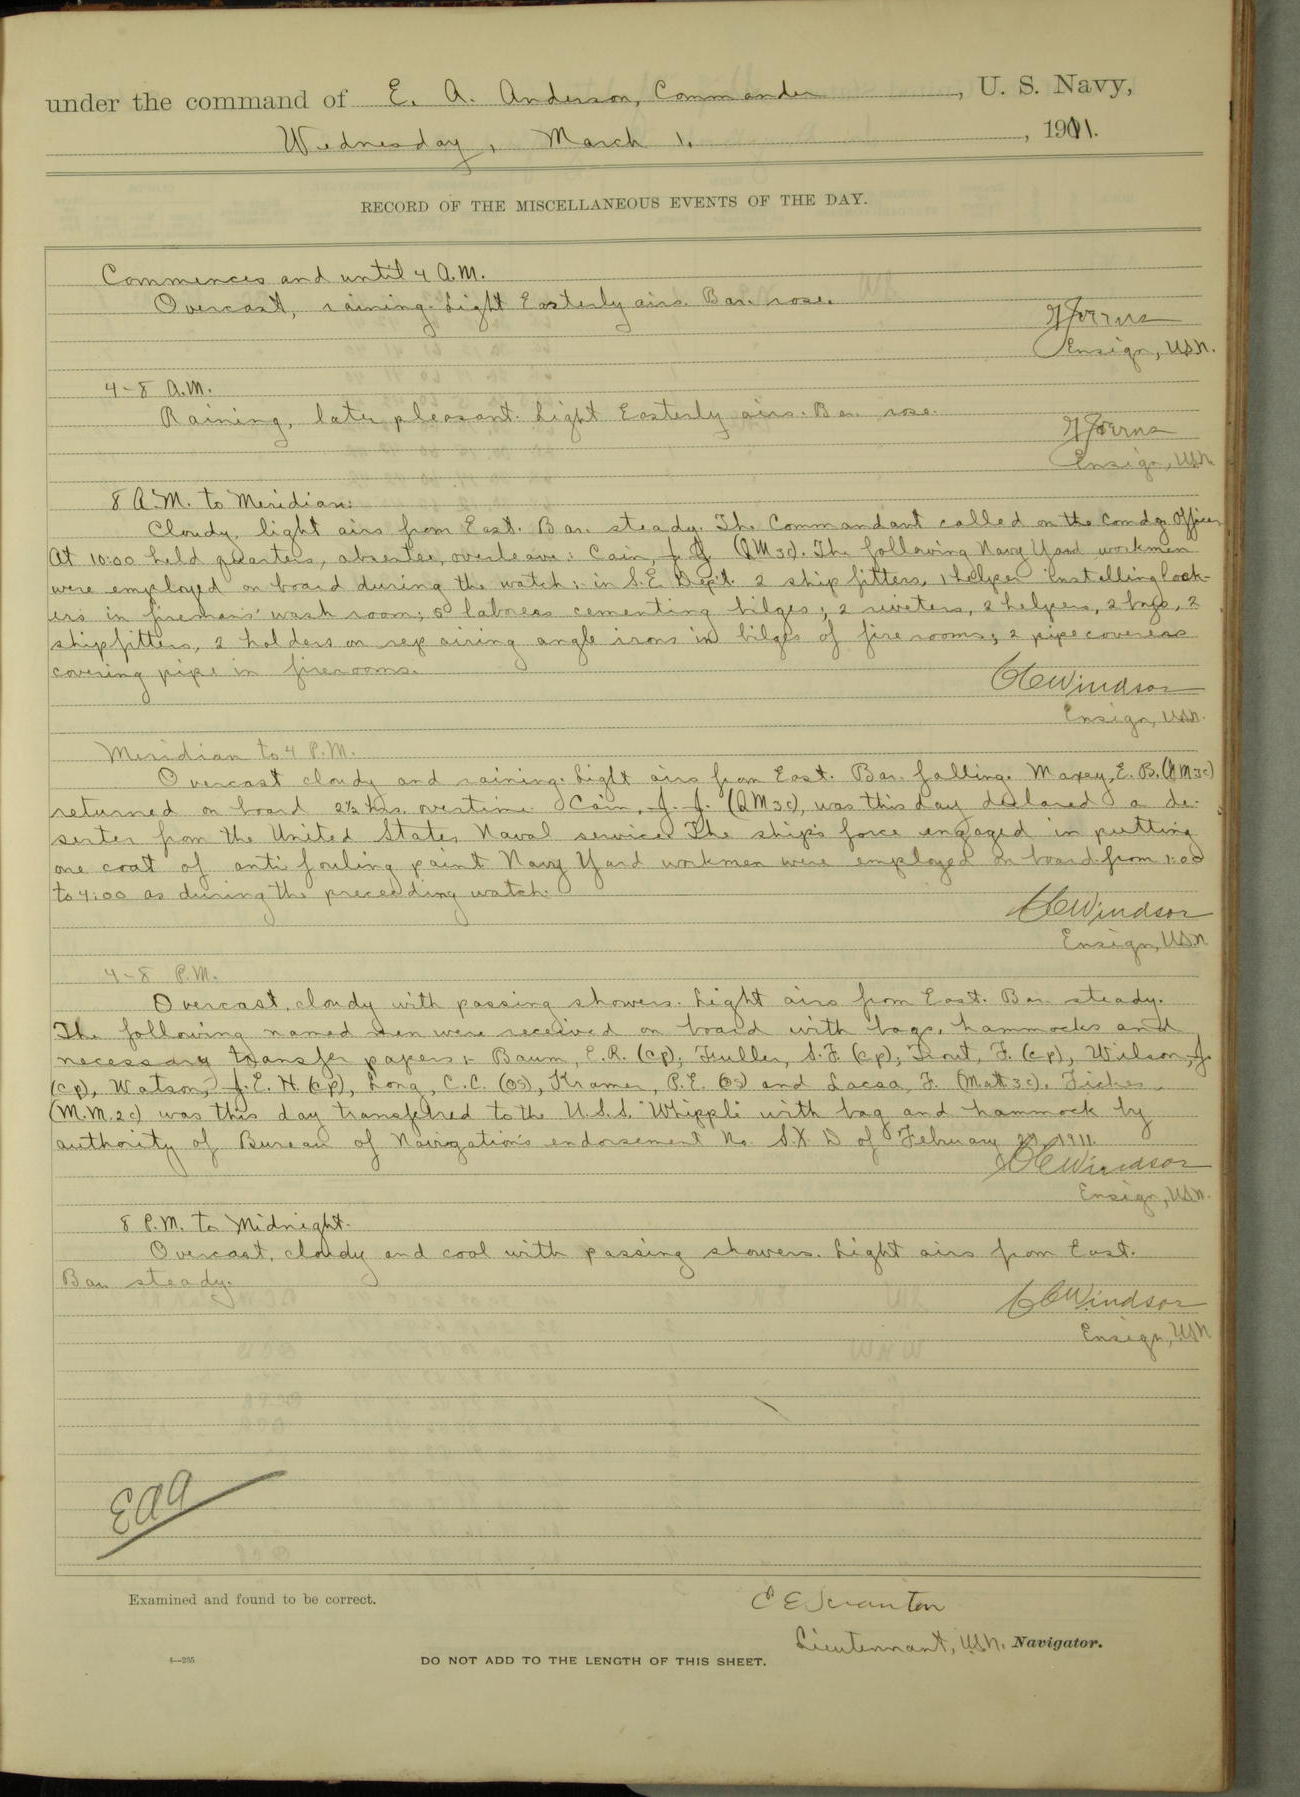 under the command of E. A. Anderson, Commander, U. S. Navy,
Wednesday, March 1, 1911.
RECORD OF THE MISCELLANEOUS EVENTS OF THE DAY.
Commences and until 4 A.M.
Overcast, raining. Light Easterly airs. Bar. rose.
Ensign, USN.
4-8 A.M.
Raining, later pleasant. Light Easterly airs. Bar. rose.
Ensign, USN
8 A.M. to Meridian:
Cloudy, light airs from East. Bar. steady. The Commandant called on the Comdg Officer
At 10:00 held quarters, absentee, overleave: Cain, J. J. (QM3c). The following Navy Yard workmen
were employed on board during the watch: in S.E. Dep't. 2 shipfitters, 1 helper installing lock-
ers in firemans' wash room; 5 laborers cementing bilges; 2 riveters, 2 helpers, 2 boys, 2
shipfitters, 2 holders on repairing angle irons in bilges of firerooms; 2 pipecoverers
covering pipe in firerooms.
CEWindsor
Ensign, USN.
Meridian to 4 P.M.
Overcast cloudy and raining. Light airs from East. Bar. falling. Maxey, E. B. (MM3c)
returned on board 2½ hrs. overtime. Cain, J. J. (QM3c), was this day declared a de-
serter from the United States Naval service. The ship's force engaged in putting
one coat of anti fouling paint. Navy Yard workmen were employed on board from 1:00
to 4:00 as during the preceeding watch.
CEWindsor
Ensign, USN
4-8 P.M.
Overcast, cloudy with passing showers. Light airs from East. Bar. steady.
The following named men were received on board with bags, hammocks and
necessary transfer papers: Baum, E.R. (cp); Fuller, S.F. (cp); Trout, F. (cp), Wilson, J.
(cp), Watson, J.E.H. (cp), Long, C.C. (OS), Kramer, P.E. (OS) and Lacsa, F. (Matt3c).
(M.M.2c) was this day transferred to the U.S.S. "Whipple" with bag and hammock by
authority of Bureau of Navigation's endorsement No. S.X. D of February 1911.
CEWindsor
Ensign, USN.
8 P.M. to Midnight.
Overcast, cloudy and cool with passing showers. Light airs from East.
Bar. steady.
CEWindsor
Ensign, USN
EAA
Examined and found to be correct.
C E Scranton
Lieutennant, USN. Navigator.
DO NOT ADD TO THE LENGTH OF THIS SHEET.